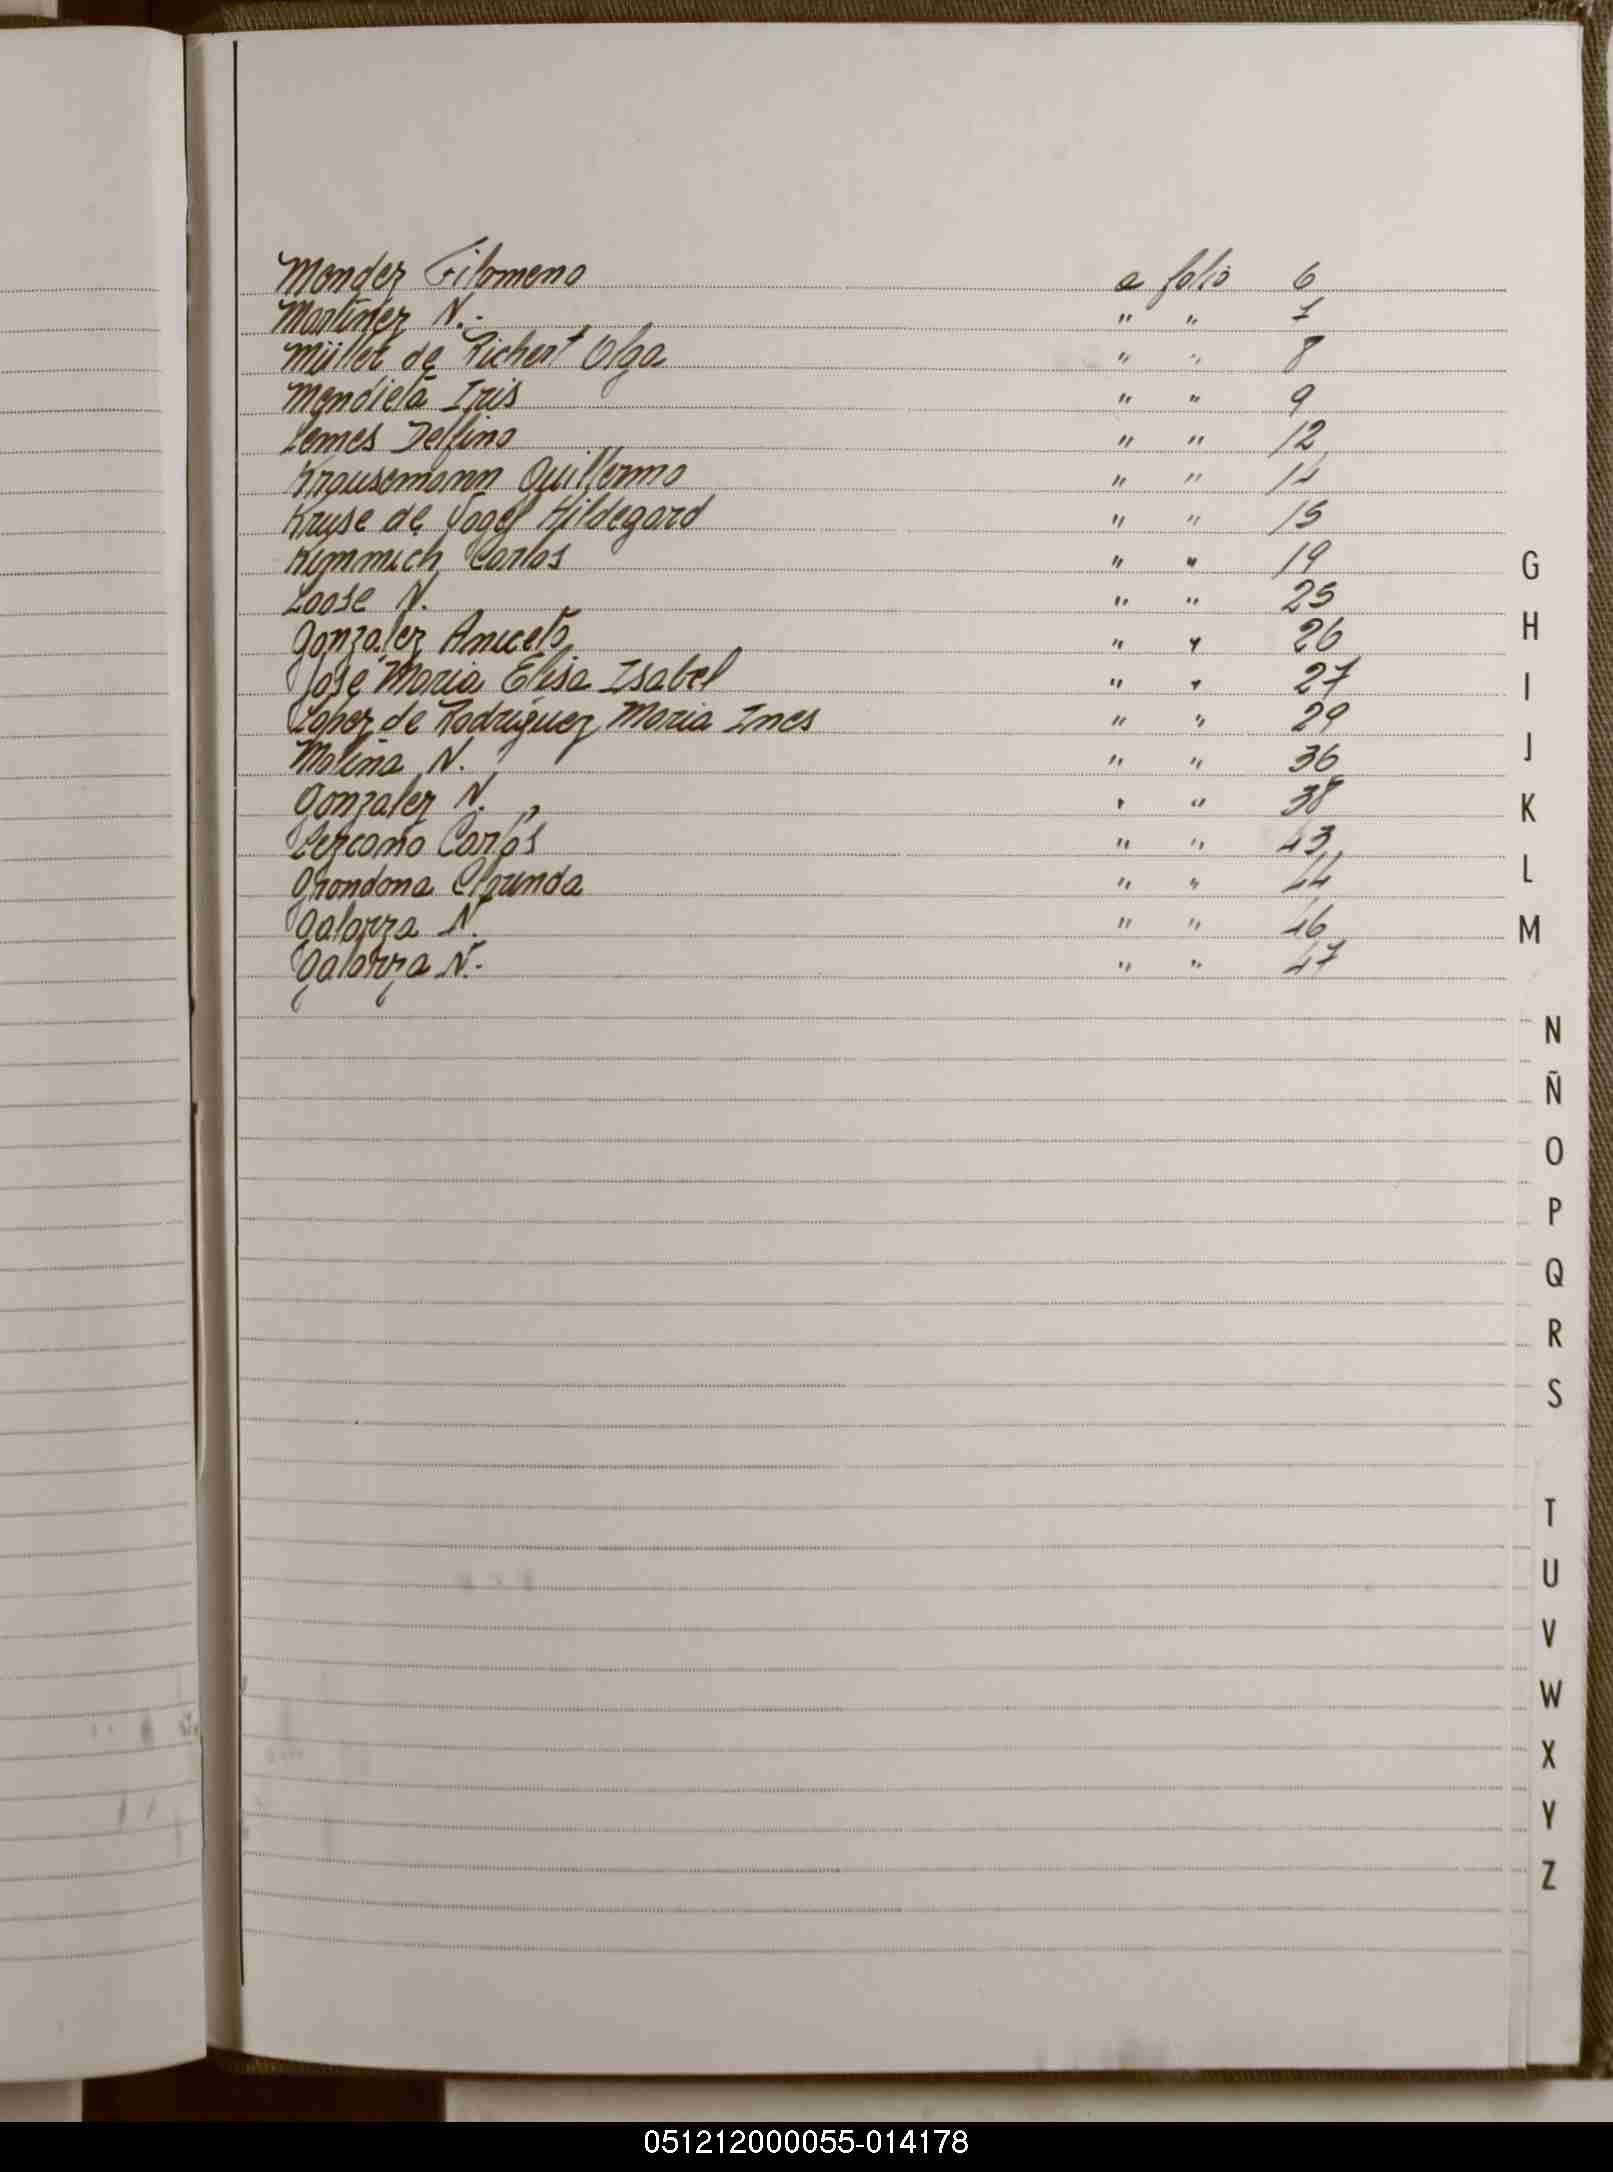 Mendez Filomeno a folio 6
Martinez N.- " " 7
Müller de Richert Olga " " 8
Mendieta Iris " " 9
Lemes Delfino " " 12
Krausemann Guillermo " " 14
Kruse de Vogel Hildegard " " 15
Kimmich Carlos " " 19
Loose N. " " 25
Gonzalez Aniceto " " 26
José Maria Elisa Isabel " " 27
Lopez de Rodriguez Maria Ines " " 29
Molina N. " " 36
Gonzalez N. " " 38
Lezcano Carlos " " 43
Grondona " " 44
Galarza N. " " 46
Galarza N.- " " 47
G
H
I
J
K
L
M
N
Ñ
O
P
Q
R
S
T
U
V
W
X
Y
Z
051212000055-014178